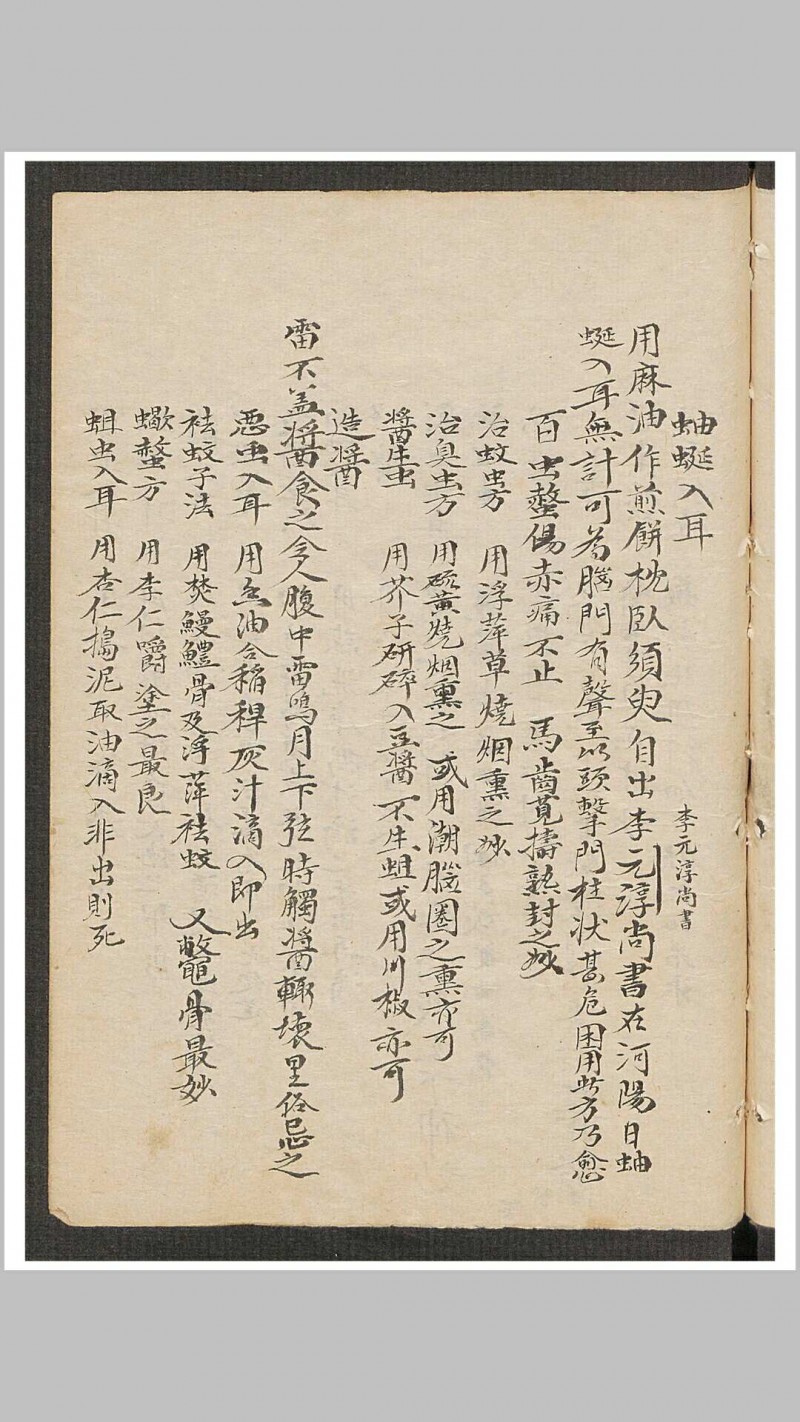 蚰蜒入耳 李元淳尚書
用麻油作煎餅枕臥須臾自出李元淳尚書在河陽日蚰
蜒入耳無計可為腦門有聲至以頭擊門柱状甚危困用此方乃愈
百虫螫傷赤痛不止 馬齒莧擣熟封之妙
治蚊虫方 用浮萍草燒烟熏之妙
治臭虫方 用硫黄燒烟熏之 或用潮腦圈之熏亦可
醬生虫 用芥子研碎入豆醬不生蛆或用川椒亦可
造醬
雷不盖醬食之令人腹中雷鳴月上下弦時觸醬輙壊里俗忌之
惡虫入耳 用香油合稲稈灰汁滴入即出
袪蚊子法 用焚鰻鱧骨及浮萍袪蚊 又鼈骨最妙
蠍螫方 用李仁嚼塗之最良
蛆虫入耳 用杏仁搗泥取油滴入非出則死